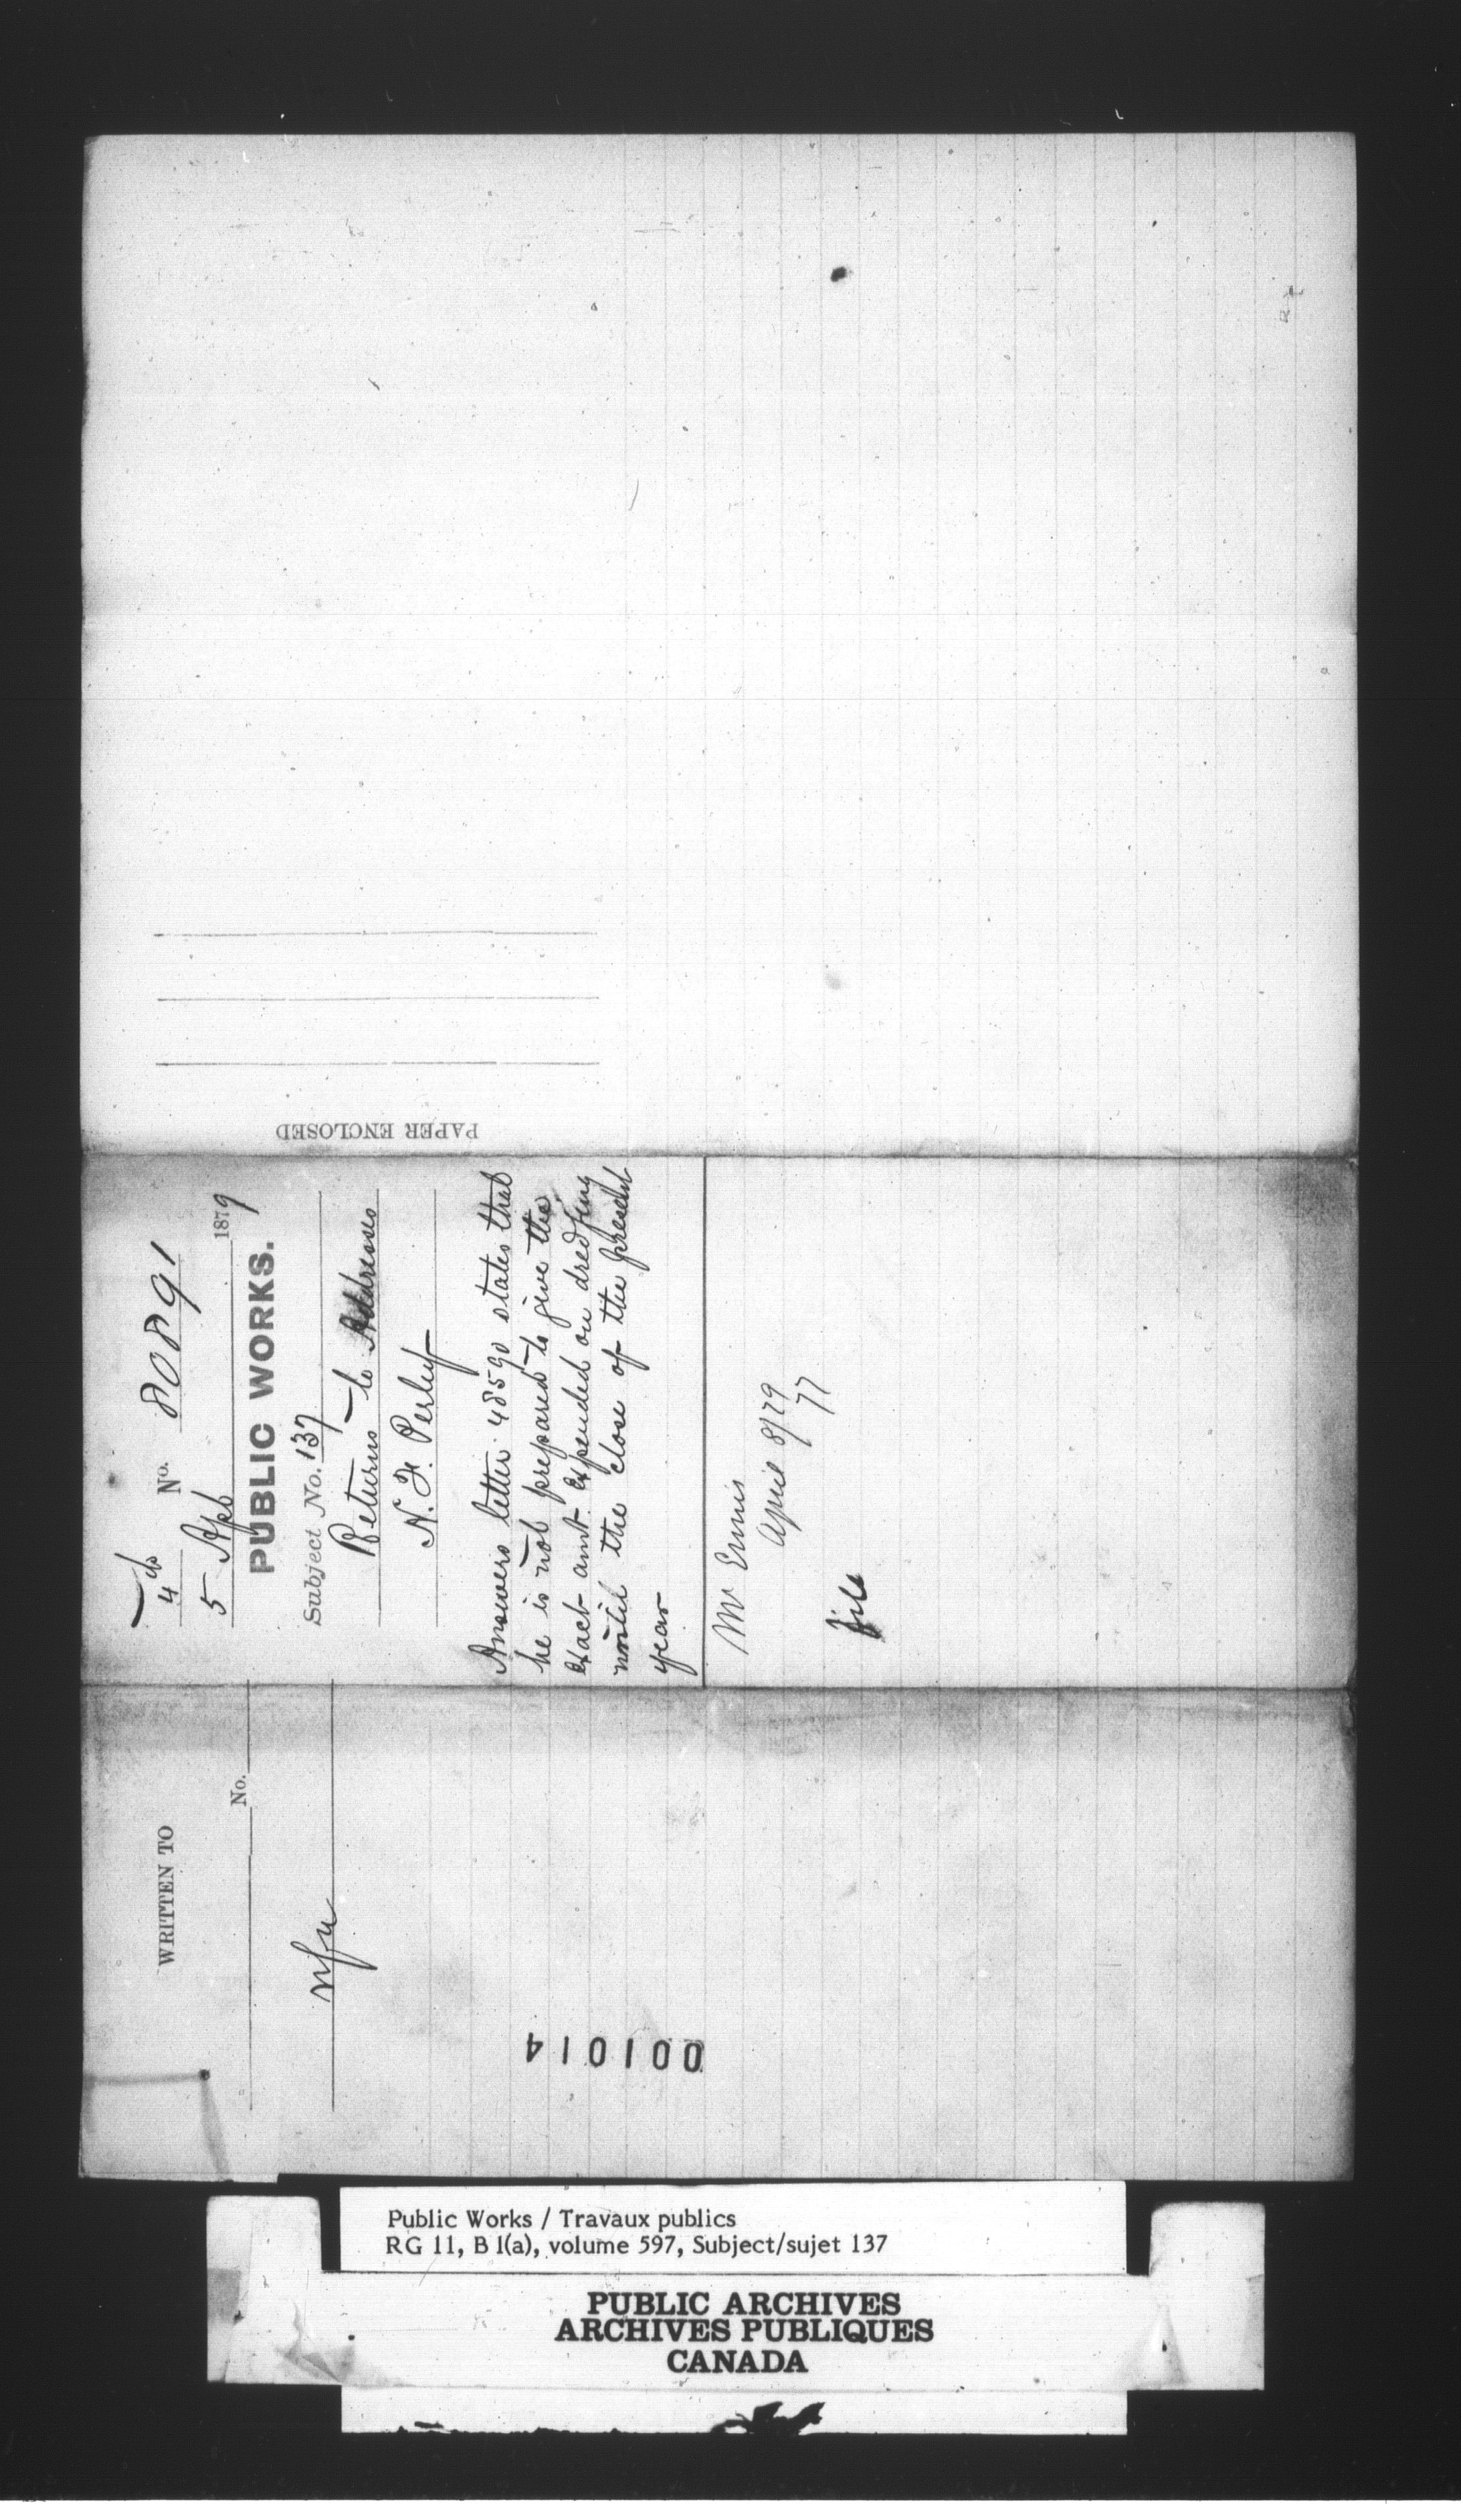 PAPER ENCLOSED
4th No. 80891
5 Apl 1879
PUBLIC WORKS.
Subject No. 137
Returns to Addresses
N. F. Perley
Answers letter 48590 states that
he is not prepared to give the
exact amt. expended on dredging
until the close of the present
year
Mr Ennis
April 8/79
77
file
WRITTEN TO
No.
001014
Public Works / Travaux publics
RG 11, B 1(a), volume 597, Subject/sujet 137
PUBLIC ARCHIVES
ARCHIVES PUBLIQUES
CANADA